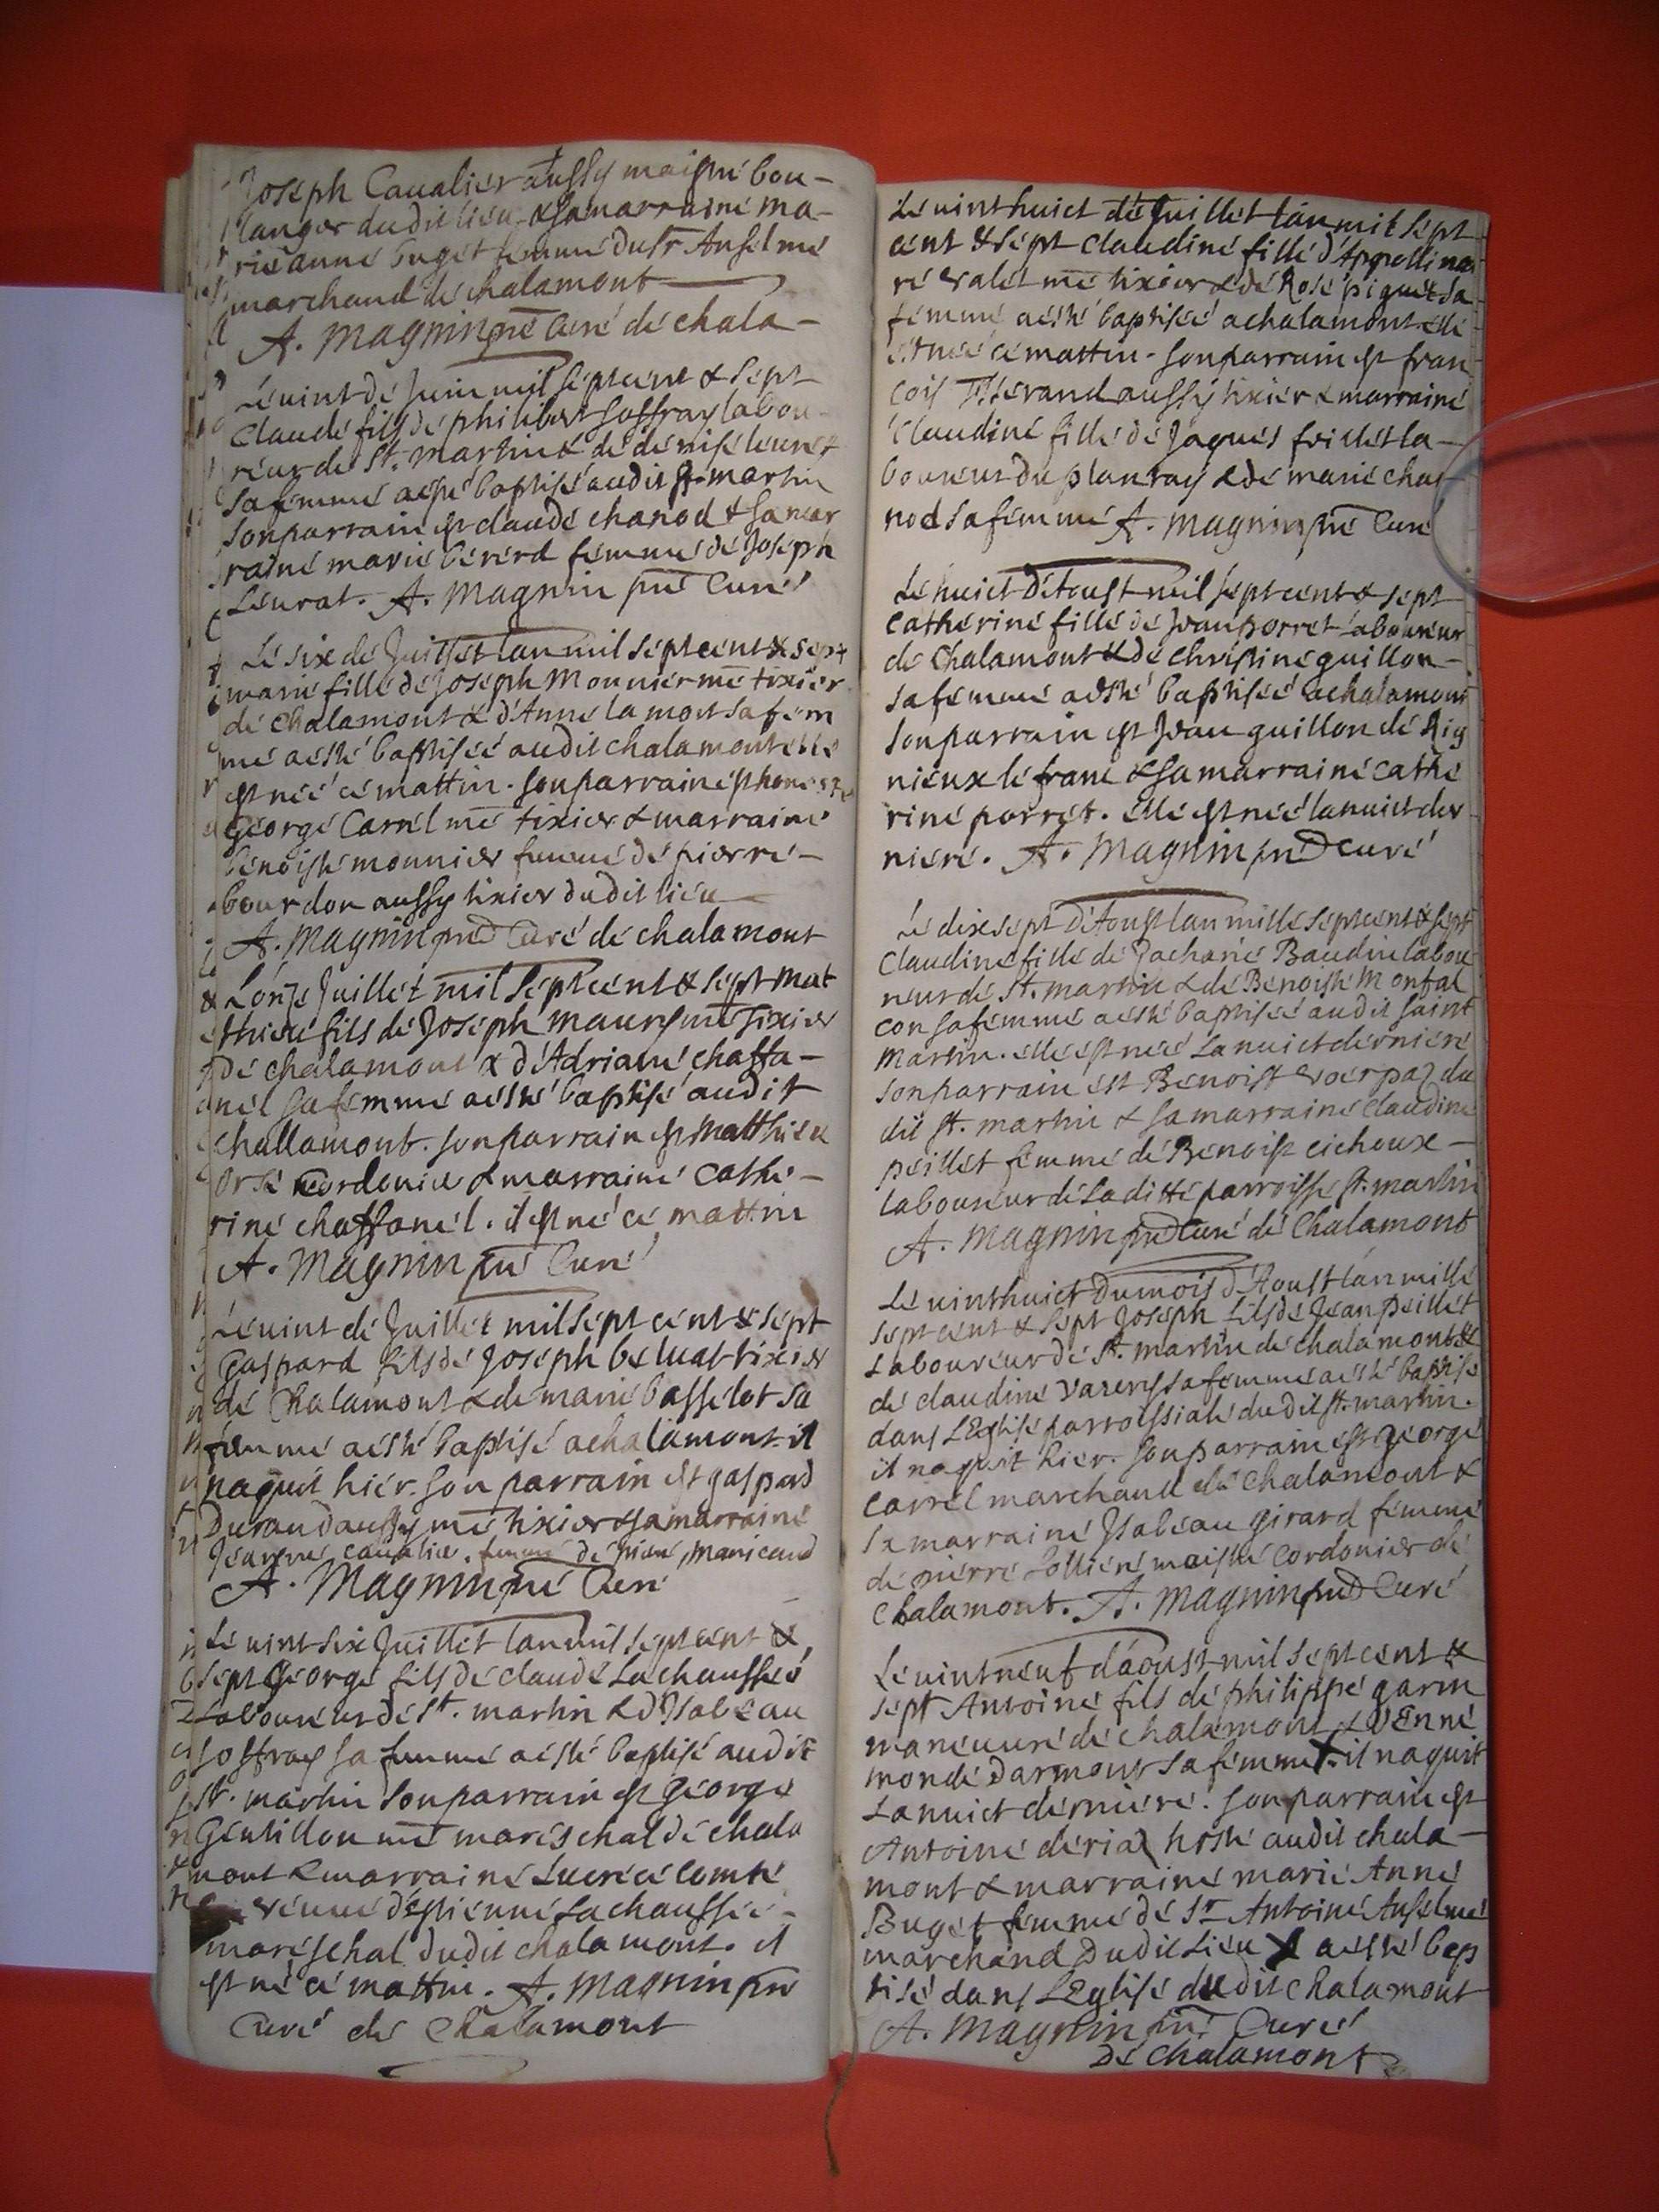 Joseph Caualier aussy maistre bou-
langer dudit lieu & sa marraine ma-
rie anne buget femme du sr Anselme
marchand de chalamont
A. Magnin pre Curé de chala-
Le vint de Juin mil sept cent & sept
Claude fils de philibert Joffray labou-
reur de St. martin & de denise leurat
sa femme a esté baptisé audit st. martin
son parrain est claude chanod & sa mar
raine marie berérd femme de Joseph
Leurat. A. Magnin pre Curé
Le six de Juillet lan mil sept cent & sept
marie fille de Joseph Monnier me tixier
de chalamont & d'Anne la mout sa fem
me a esté baptisée audit chalamont elle
est née ce mattin. son parrain est honeste
George Carrel me tixier & marraine
benoiste monnier femme de pierre-
bourdon aussy tixier dudit lieu
A. Magnin pre Curé de chalamont
L'onze Juillet mil sept cent & sept mat
thieu fils de Joseph maurys me tixier
de chalamont & d'Adriane chaffa-
nel sa femme a esté baptisé audit
challamont. son parrain est Matthieu
orse cordonier & marraine cathe-
rine chaffanel. il est né ce mattin
A. Magnin pre Curé
Le vint de Juillet mil sept cent & sept
Gaspard fils de Joseph beluat tixier
de Chalamont & de marie basselot sa
femme a esté baptisé a chalamont. il
naquit hier. son parrain est gaspard
Durand aussy me tixier & sa marraine
Jeanne caualier. femme de pierre manicaud
A. Magnin pre Curé
Le vint six Juillet lan mil sept cent &
sept George fils de claude Lachaussée
Laboureur de St. martin & d'Ysabeau
Joffray sa femme a esté baptisé audit
st. martin son parrain est George
Gentillon me mareschal de chala
mont & marraine Lucrece comte
veuue d'estienne Lachaussée-
mareschal dudit chalamont. il
est né ce mattin. A. Magnin pre
Curé de Chalamont
Le vinthuict de Juillet lan mil sept
cent & sept claudine fille d'Appollinai
re valet me tixier & de Rose piquet sa
femme a esté baptisée a chalamont. elle
est née ce mattin. son parrain est fran
cois Titerand aussy tixier & marraine
Claudine fille de Jaques feillet la-
boureur du plantay & de marie cha-
nod sa femme A. Magnin pre Curé
Le huict d'Aoust mil sept cent & sept
catherine fille de Jean porret laboureur
de Chalamont & de christine guillon-
sa femme a esté baptisée a chalamont
son parrain est Jean guillon de Rig
nieux le franc & sa marraine cathe
rine porret. elle est née la nuict der
niere. A. Magnin pre Curé
Le dix sept d'Aoust lan mille sept cent & sept
Claudine fille de Zacharie Baudin labou
reur de St. martin & de Benoiste Monfal
con sa femme a esté baptisée audit saint
Martin. elle est née La nuict derniere
son parrain est Benoist verpaz du
dit st. martin & sa marraine Claudine
peillet femme de Benoist cichoux-
laboureur de La ditte parroisse st. martin
A. Magnin pre Curé de Chalamont
Le vinthuict du mois d'Aoust lan mille
sept cent & sept Joseph fils de Jean peillet
Laboureur de St. martin de chalamont &
de claudine Vareys sa femme a esté baptisé
dans L'Eglise parroissiale dudit st. martin.
il naquit hier. son parrain est George
Carrel marchand de Chalamont &
sa marraine Jsabeau Girard femme
de pierre Lolliere maistre cordonier de
Chalamont. A. Magnin pre Curé
Le vint neuf d'aoust mil sept cent &
sept Antoine fils de philippe garin
maneuure de chalamont & d'Enne
monde darmour sa femme X il naquit
La nuict derniere. son parrain est
Antoine deriaz hoste audit chala-
mont & marraine marie Anne
Buget femme de Sr Antoine Anselme
marchand dudit Lieu X a esté bap
tisé dans L'Eglise dudit Chalamont
A. Magnin pre Curé
de Chalamont